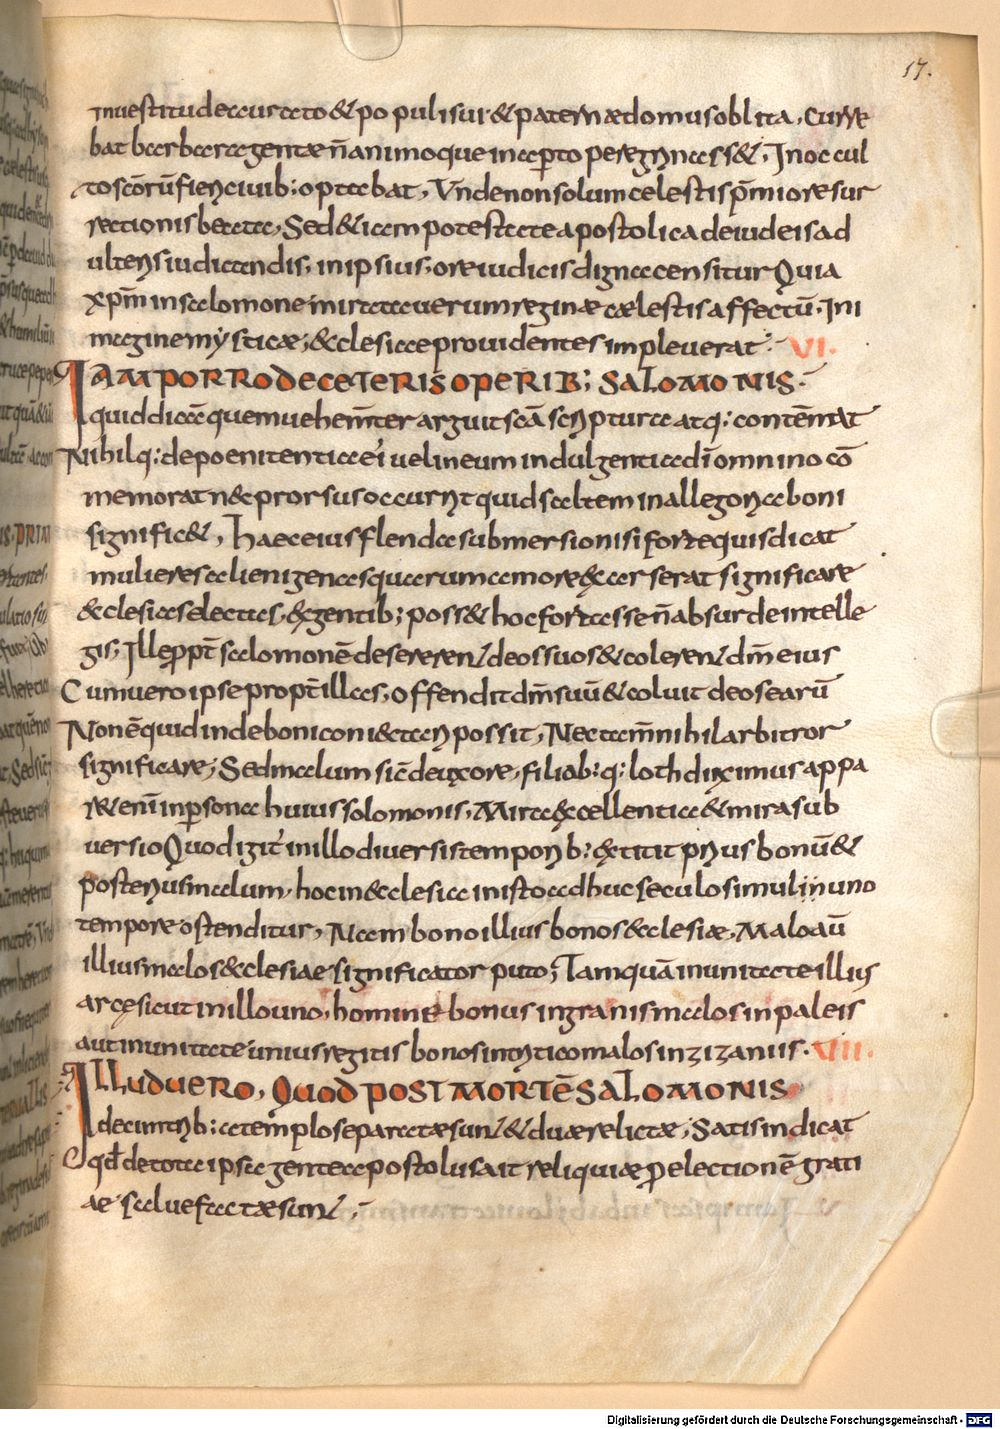 17.
inuestitu deaurato & populi sui & paternae domus oblita, Curre
bat barbara gentae n̄ animo que incepto peregrinass&, In occul
tos cōrū fieri ciuib: optabat, Vnde non solum celestis p̄mio resur
rectionis beata, Sed & iam potestate apostolica de iudeis ad
ulteris iudicandis, in ipsius, ore iudicis digna censitur Quia
xp̄m in salomone mirata uerum reginae caelestis affectū. In i
magine mysticae, & clesiae prouidentes impleuerat. VI.
IAM PORRO DE CETERIS OPERIB; SALOMONIS.
quid dicā quem uehem̄ter arguit sc̄a scriptura atq: contēnat
Nihilq: de poenitentia ei uel in eum indulgentia dī omnino cō
memorat n& prorsus occurrit quid saltem in allegoria boni
signific&, Haec eius flenda submersioni si forte quis dicat
mulieres alienigenas quarum amore exarserat significare
& clesias electas, ex gentib; poss& hoc fortasse n̄ absurde intelle
gi; Si illae ppt̄ salomonē desereren̄ deos suos & coleren̄ dm̄ eius
Cum uero ipse propt̄ illas, offendit dm̄ suū & coluit deos earū
Non ē quid inde boni coni&tari possit, Nec tam̄ nihil arbitror
significare; Sed malum sic̄ de uxore, filiab: q: loth diximus appa
r& enī in p̄sona huius solomonis, Mira excellentia & mira sub
uersio Quod igit̄ in illo diuersis temporib: extitit prius bonū &
posterius malum, hoc in & clesia in isto adhuc seculo simul in uno
tempore ostenditur, Nam bono illius bonos & clesiae, Malo aū
illius malos & clesiae significator puto; Tamquā in unitate illius
arcę sicut in illo uno, homine bonus in granis malos in paleis
aut in unitate unius regitis bonos in tritico malos in zizaniis. VIII.
ILLUD UERO, QUOD POST MORTĒ SALOMONIS
decim trib: a templo separatae sun̄ & duae relictae, Satis indicat
qđ de tota ipsa gente apostolus ait reliquiae p electionē grati
ae saluae factae sun̄.
Digitalisierung gefördert durch die Deutsche Forschungsgemeinschaft - DFG